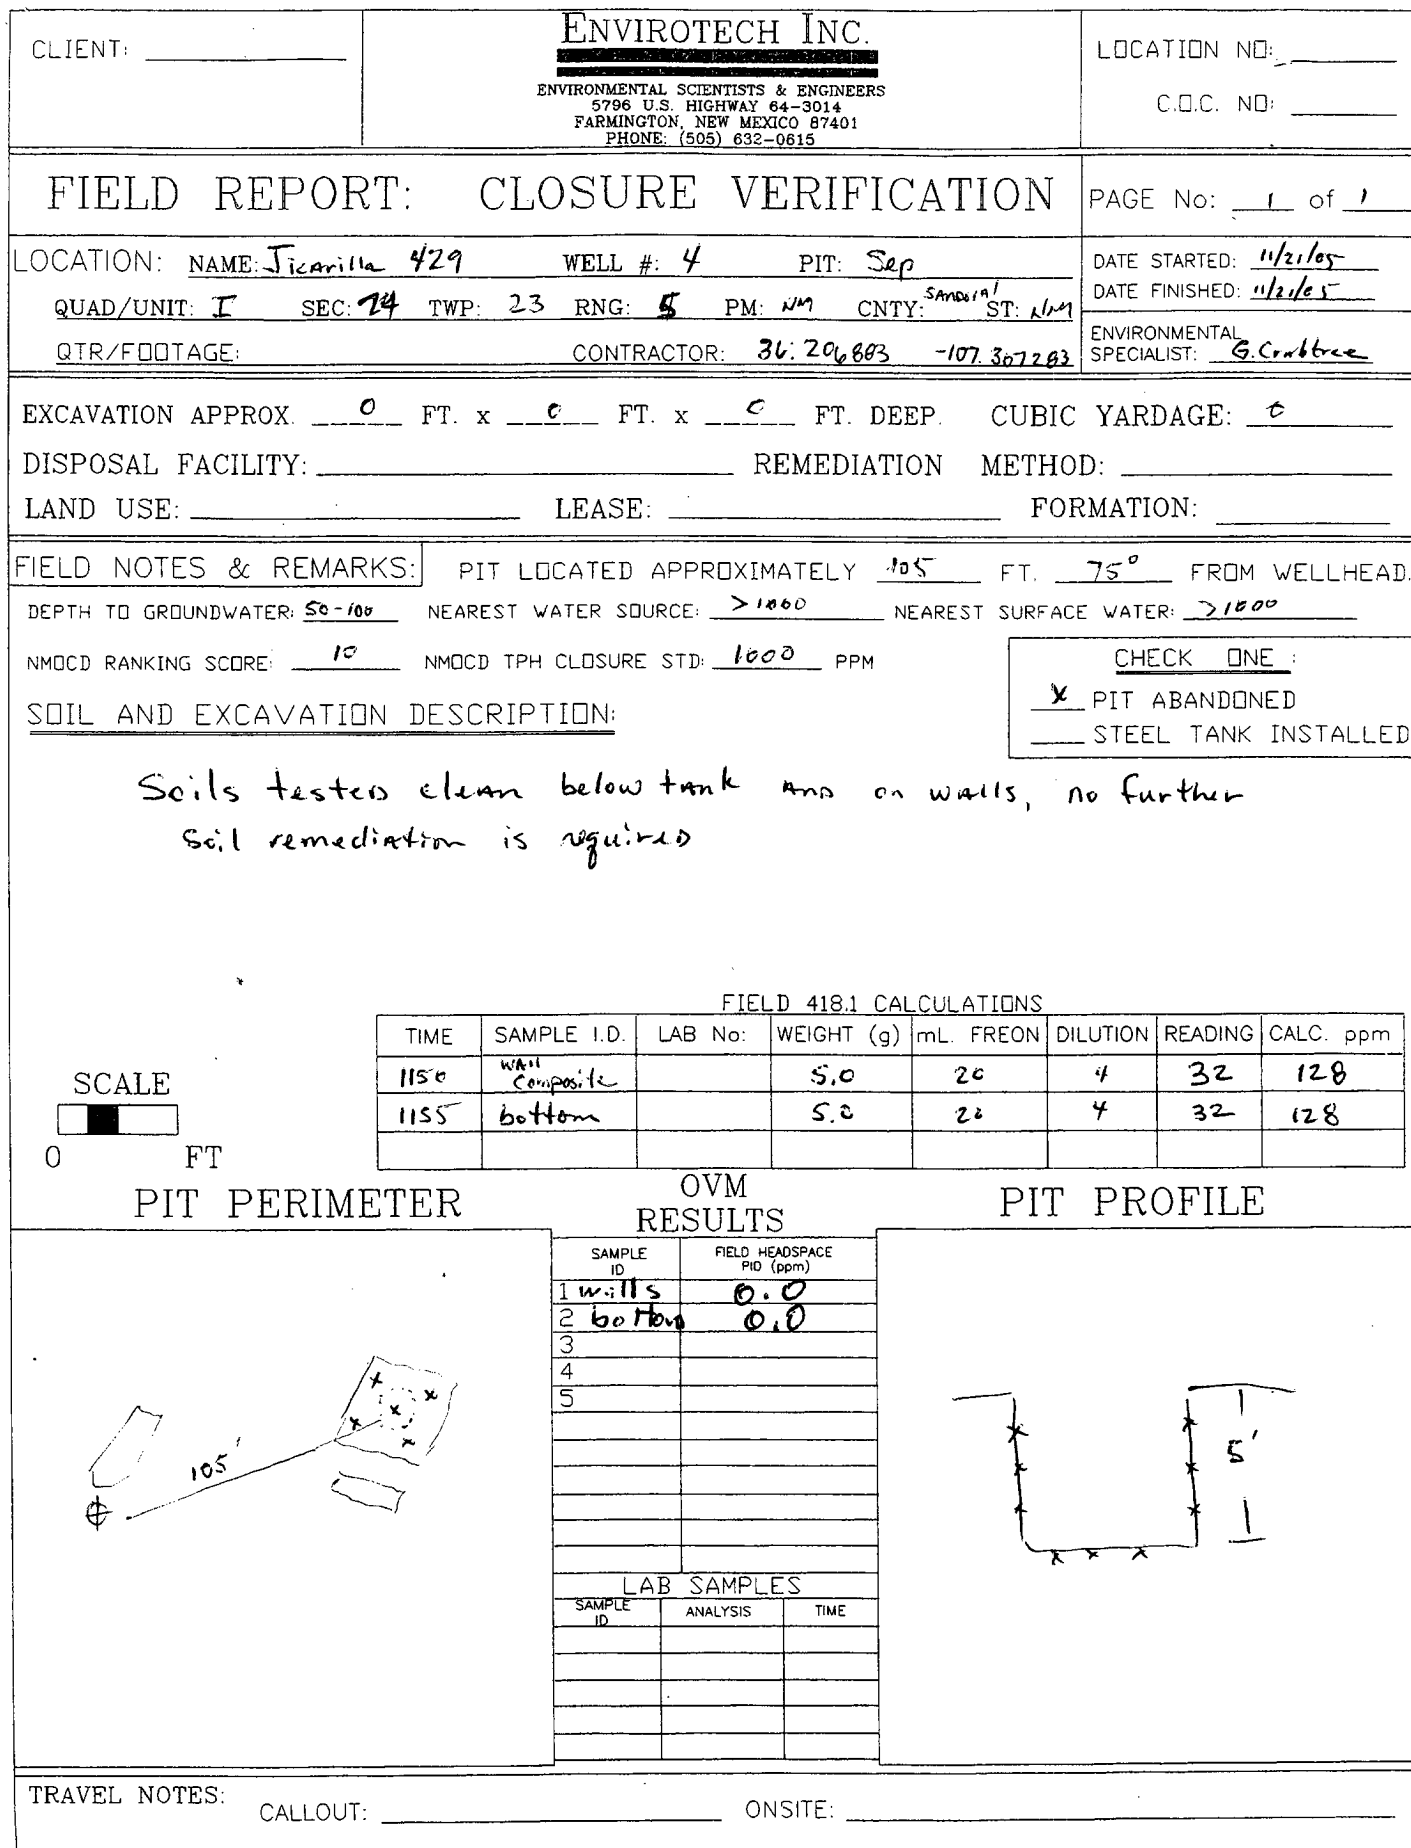 CLIENT:
ENVIROTECH INC.
ENVIRONMENTAL SCIENTISTS & ENGINEERS
5796 U.S. HIGHWAY 64-3014
FARMINGTON, NEW MEXICO 87401
PHONE: (505) 632-0615
LOCATION NO:
C.O.C. NO:
FIELD REPORT: CLOSURE VERIFICATION
PAGE No: 1 of 1
LOCATION: NAME: Jicarilla 429 WELL #: 4 PIT: Sep
QUAD/UNIT: I SEC: 24 TWP: 23 RNG: 5 PM: NM CNTY: SANDOVAL ST: NM
QTR/FOOTAGE: CONTRACTOR: 36.206883 -107.307283
DATE STARTED: 11/21/05
DATE FINISHED: 11/21/05
ENVIRONMENTAL
SPECIALIST: G. Crabtree
EXCAVATION APPROX. 0 FT. x 0 FT. x 0 FT. DEEP. CUBIC YARDAGE: 0
DISPOSAL FACILITY: REMEDIATION METHOD:
LAND USE: LEASE: FORMATION:
FIELD NOTES & REMARKS: PIT LOCATED APPROXIMATELY 105 FT. 75° FROM WELLHEAD.
DEPTH TO GROUNDWATER: 50-100 NEAREST WATER SOURCE: >1000 NEAREST SURFACE WATER: >1000
NMOCD RANKING SCORE: 10 NMOCD TPH CLOSURE STD: 1000 PPM
CHECK ONE :
X PIT ABANDONED
STEEL TANK INSTALLED
SOIL AND EXCAVATION DESCRIPTION:
Soils tested clean below tank and on walls, no further
soil remediation is required
FIELD 418.1 CALCULATIONS
TIME SAMPLE I.D. LAB No: WEIGHT (g) mL. FREON DILUTION READING CALC. ppm
1150 Wall Composite 5.0 20 4 32 128
1155 bottom 5.0 20 4 32 128
SCALE
0 FT
PIT PERIMETER
OVM
RESULTS
PIT PROFILE
SAMPLE ID FIELD HEADSPACE PID (ppm)
1 walls 0.0
2 bottom 0.0
3
4
5
105'
5'
LAB SAMPLES
SAMPLE ID ANALYSIS TIME
TRAVEL NOTES:
CALLOUT: ONSITE: